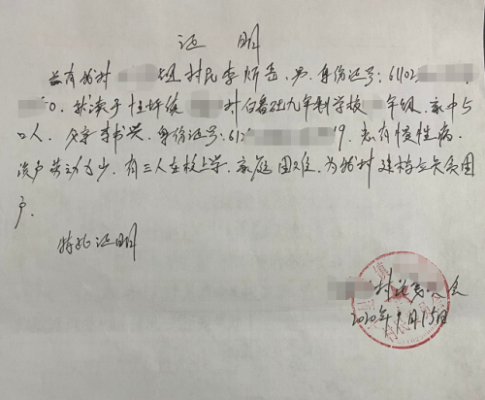 证 明
兹有我村 组村民李炘岳，男，身份证号：6102
0，就读于 九年制学校 年级，家中5
口人，父亲李书兴，身份证号：612 19，患有慢性病，
该户劳动力少，有三人在校上学，家庭困难，为我村建档立卡贫困
户.
特此证明
村 会
2020年9月15日